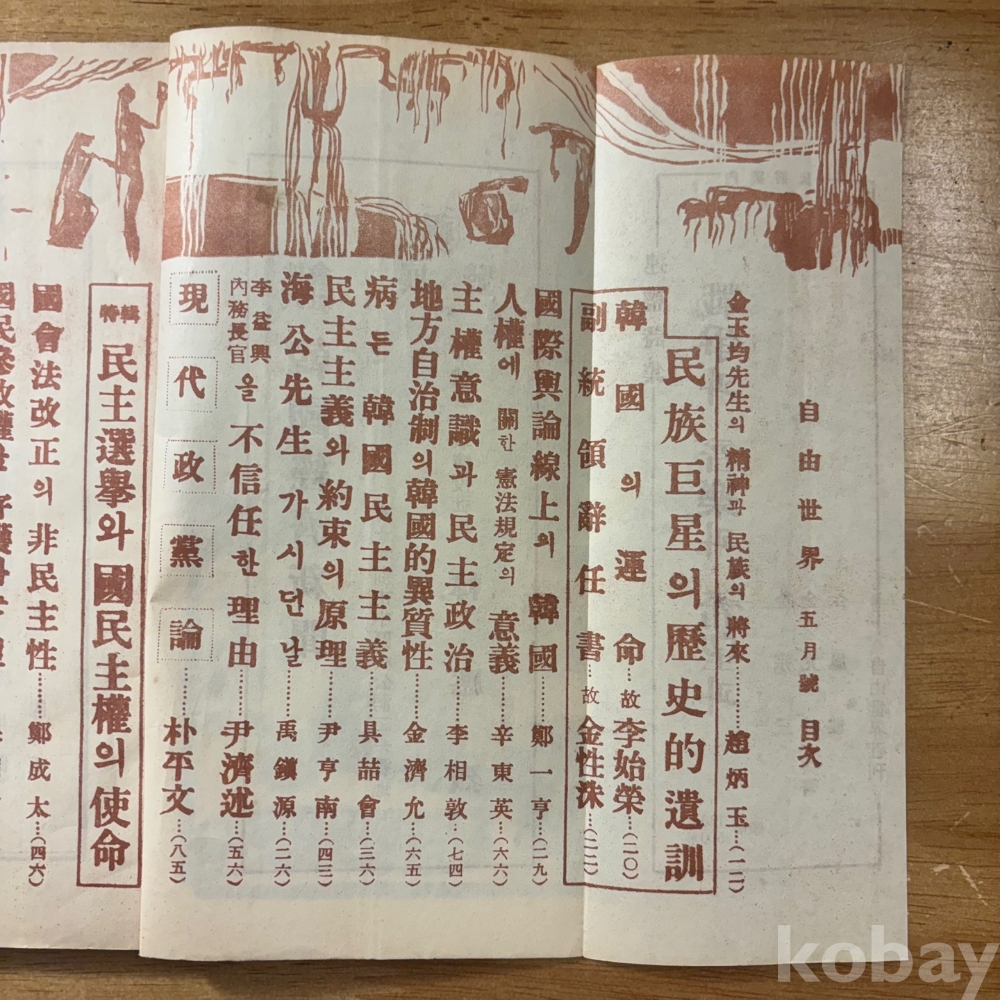 自由世界 五月號 目次
金玉均先生의 精神과 民族의 將來……趙炳玉…(一二)
民族巨星의 歷史的遺訓
韓國의 運命…故 李始榮…(二〇)
副統領辭任書…故 金性洙…(二二)
國際輿論線上의 韓國……鄭一亨…(二九)
人權에 關한 憲法規定의 意義……辛東英…(六六)
主權意識과 民主政治……李相敦…(七四)
地方自治制의 韓國的異質性……金濟允…(六五)
病든 韓國民主主義……具喆會…(三六)
民主主義와 約束의 原理……尹亨南…(四三)
海公先生 가시던 날……禹鎭源…(二六)
李益興 內務長官을 不信任한 理由……尹濟述…(五六)
現代政黨論……朴平文…(八五)
特輯 民主選擧와 國民主權의 使命
國會法改正의 非民主性……鄭成太…(四六)
國民參政權
kobay